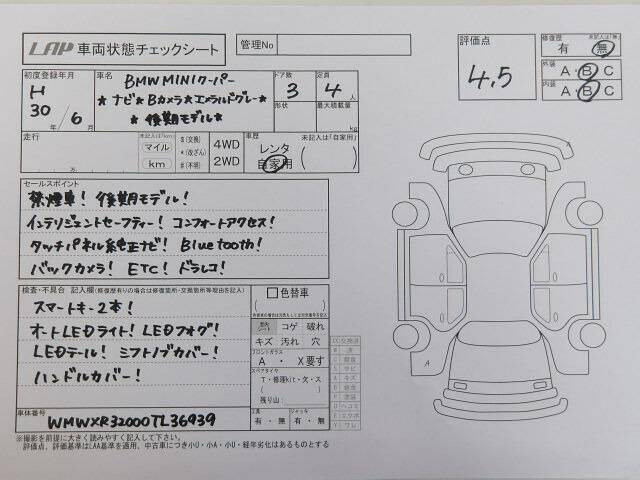 LAP 車両状態チェックシート
管理No
評価点
4.5
修復歴
未記入は「無」
有 ・ 無
外装 A・B・C
内装 A・B・C
初度登録年月
H
30年 / 6月
車名
BMW MINI クーパー
★ナビ★Bカメラ★エメラルドグレー★
★ 後期モデル★
ドア数
3
定員
4人
形状
最大積載量
kg
走行
未記入は「km」
マイル
km
$(交換)
*(改ざん)
#(不明)
4WD
2WD
車歴
未記入は「自家用」
レンタ
自家用 ( )
セールスポイント
禁煙車! 後期モデル!
インテリジェントセーフティー! コンフォートアクセス!
タッチパネル純正ナビ! Bluetooth!
バックカメラ! ETC! ドラレコ!
検査・不具合 記入欄(修復歴有りの場合は修復箇所・交換箇所等程度を記入)
スマートキー2本!
オートLEDライト! LEDフォグ!
LEDテール! シフトノブカバー!
ハンドルカバー!
□色替車
コゲ 破れ
キズ 汚れ 穴
フロントガラス
A ・ X要す
スペアタイヤ
T・修理kit・欠・ス
( )
残り山:
工具
有・無
ジャッキ
有・無
A
車体番号
WMWXR32000TL36939
※撮影を前提に大きく読みやすく記入して下さい。
評価点、評価基準はLAA基準を適用、中古車につき小U・小A・小U・経年劣化はあるものとする